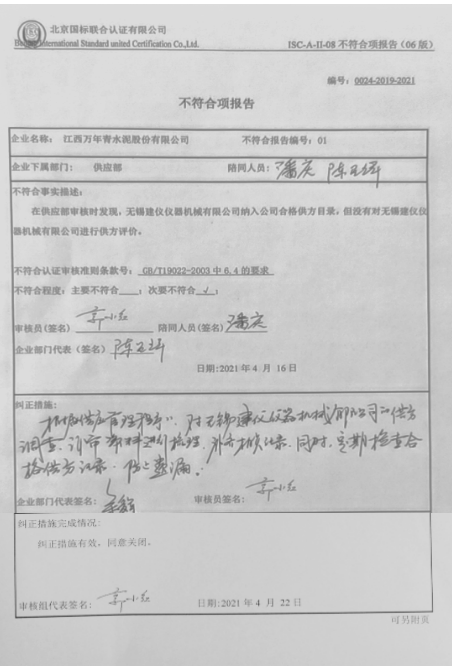 北京国标联合认证有限公司
International Standard united Certification Co.,Ltd.
ISC-A-II-08 不符合项报告(06 版)
编号: 0024-2019-2021
不符合项报告
企业名称: 江西万年青水泥股份有限公司 不符合报告编号: 01
企业下属部门: 供应部 陪同人员:
不符合事实描述:
在供应部审核时发现,无锡建仪仪器机械有限公司纳入公司合格供方目录,但没有对无锡建仪仪
器机械有限公司进行供方评价。
不符合认证审核准则条款号: GB/T19022-2003 中 6.4 的要求
不符合程度: 主要不符合___; 次要不符合 √ ;
审核员(签名) 陪同人员(签名)
企业部门代表(签名)
日期:2021 年 4 月 16日
纠正措施:
对无锡建仪仪器机械有限公司
同时,定期检查合
格供方记录,防止遗漏.
企业部门代表签名: 审核员签名:
纠正措施完成情况:
纠正措施有效,同意关闭。
审核组代表签名: 日期:2021 年 4 月 22 日
可另附页